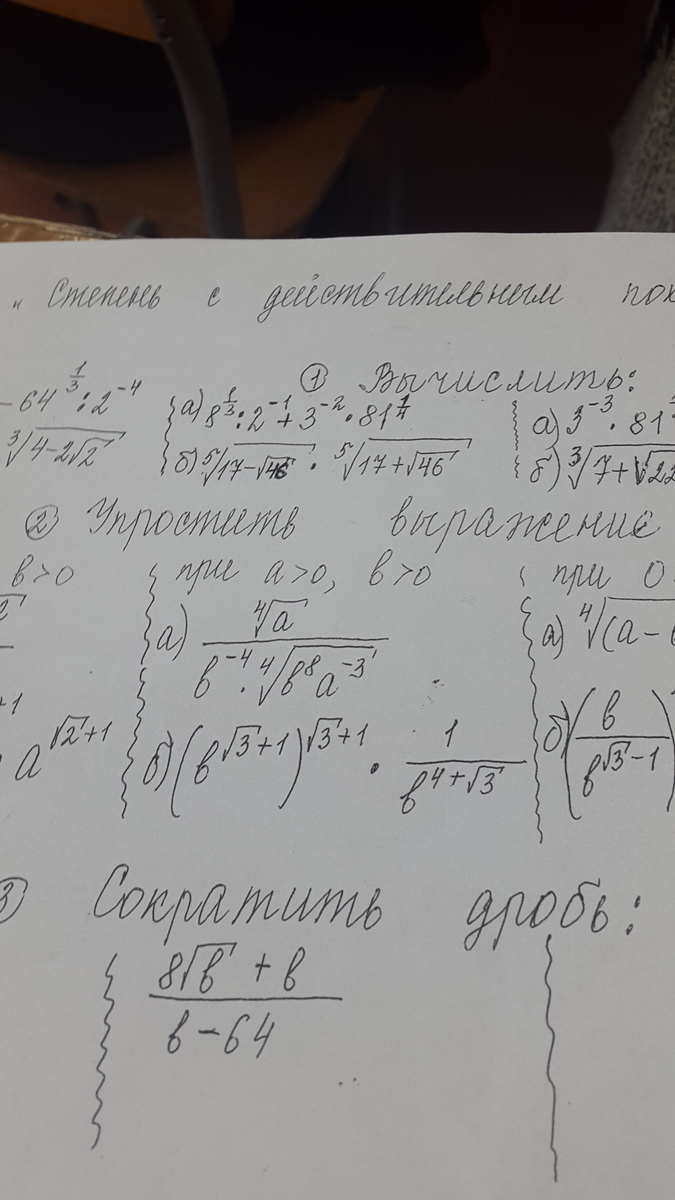 " Степень с действительным пок
① Вычислить:
-64^{1/3} : 2^{-4}
∛(4-2√2)
а) 8^{1/3} : 2^{-1} + 3^{-2} · 81^{1/4}
б) ⁵√(17-√46) · ⁵√(17+√46)
а) 3^{-3} · 81
б) ∛(7+√22
② Упростить выражение
в>0
a^{√2+1}
при a>0, в>0
а) ⁴√a / (в^{-4} · ⁴√(в^8 a^{-3}))
б) (в^{√3+1})^{√3+1} · 1/в^{4+√3}
при 0
а) ⁴√(a-
б) (в/в^{√3-1})
3) Сократить дробь:
(8√в + в)/(в-64)